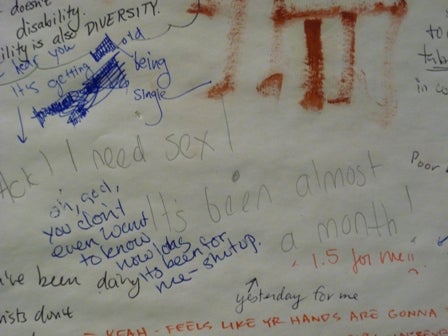 doesn't
disability.
ility is also DIVERSITY.
hear you
it's getting old
being
single
to
in co
Ack! I need sex!
It's been almost
a month!
oh, god,
you don't
even want
to know
how long
it's been for
me - shut up.
1.5 for me!!
Poor
yesterday for me
've been
ists don't
- YEAH - FEELS LIKE YR HANDS ARE GONNA